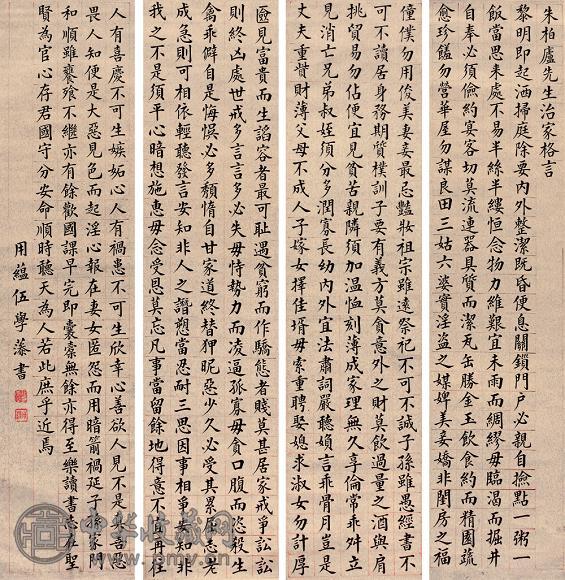 朱柏廬先生治家格言
黎明即起洒掃庭除要內外整潔既昏便息關鎖門戶必親自撿點一粥一
飯當思來處不易半絲半縷恒念物力維艱宜未雨而綢繆毋臨渴而掘井
自奉必須儉約宴客切莫流連器具質而潔瓦缶勝金玉飲食約而精園蔬
愈珍饈勿營華屋勿謀良田三姑六婆實淫盜之媒婢美妾嬌非閨房之福
僮僕勿用俊美妻妾最忌豔妝祖宗雖遠祭祀不可不誠子孫雖愚經書不
可不讀居身務期質樸訓子要有義方莫貪意外之財莫飲過量之酒與肩
挑貿易勿佔便宜見貧苦親隣須加溫恤刻薄成家理無久享倫常乖舛立
見消亡兄弟叔姪須分多潤寡長幼內外宜法肅詞嚴聽婦言乖骨肉豈是
丈夫重貲財薄父母不成人子嫁女擇佳壻毋索重聘娶媳求淑女勿計厚
匳見富貴而生諂容者最可恥遇貧窮而作驕態者賤莫甚居家戒爭訟訟
則終凶處世戒多言言多必失毋恃勢力而凌逼孤寡毋貪口腹而恣殺生
禽乖僻自是悔悞必多頹惰自甘家道終替狎昵惡少久必受其累屈志老
成急則可相依輕聽發言安知非人之譖愬當忍耐三思因事相爭安知非
我之不是須平心暗想施惠毋念受恩莫忘凡事當留餘地得意不宜再往
人有喜慶不可生嫉妬心人有禍患不可生欣幸心善欲人見不是真善惡
畏人知便是大惡見色而起淫心報在妻女匿怨而用暗箭禍延子孫家門
和順雖饔飧不繼亦有餘歡國課早完即囊橐無餘亦得至樂讀書志在聖
賢為官心存君國守分安命順時聽天為人若此庶乎近焉
用蘊伍學藻書
中华收藏网